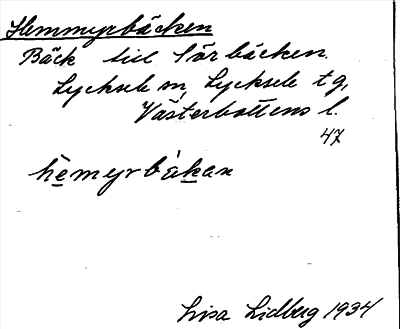 Hemmyrbäcken
Bäck tillÖrbäcken.
Lycksele sn, Lycksele tg,
Västerbottens l.
47
hemyrbäkan
Lisa Lidberg 1934